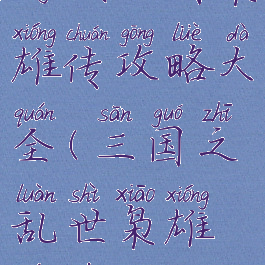 xióng chuán gōng lüè dà
雄传攻略大
quán sān guó zhī
全(三国之
luàn shì xiāo xióng
乱世枭雄